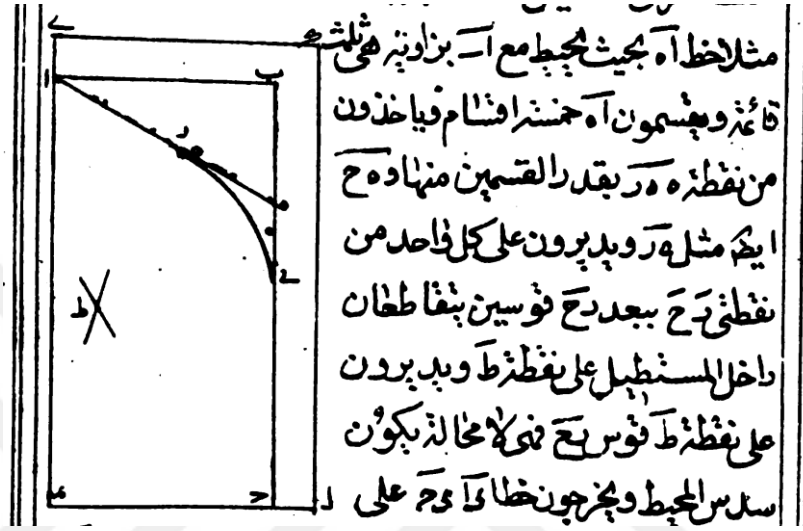 مثلا خط اه بحيث يحيط مع اب بزاوية هى ثلث
قائمة ويقسمون اه خمسة اقسام فياخذون
من نقطة ه هر بقدر القسمين منها و ه ح
ايضَ مثل هر ويديرون على كل واحد من
نقطتى ر ح ببعد رح قوسين يتقاطعان
داخل المستطيل على نقطة ط ويديرون
على نقطة ط قوس رح فهى لا محالة يكون
سدس المحيط ويخرجون خطا على
ب
ا
ر
ه
ح
ط